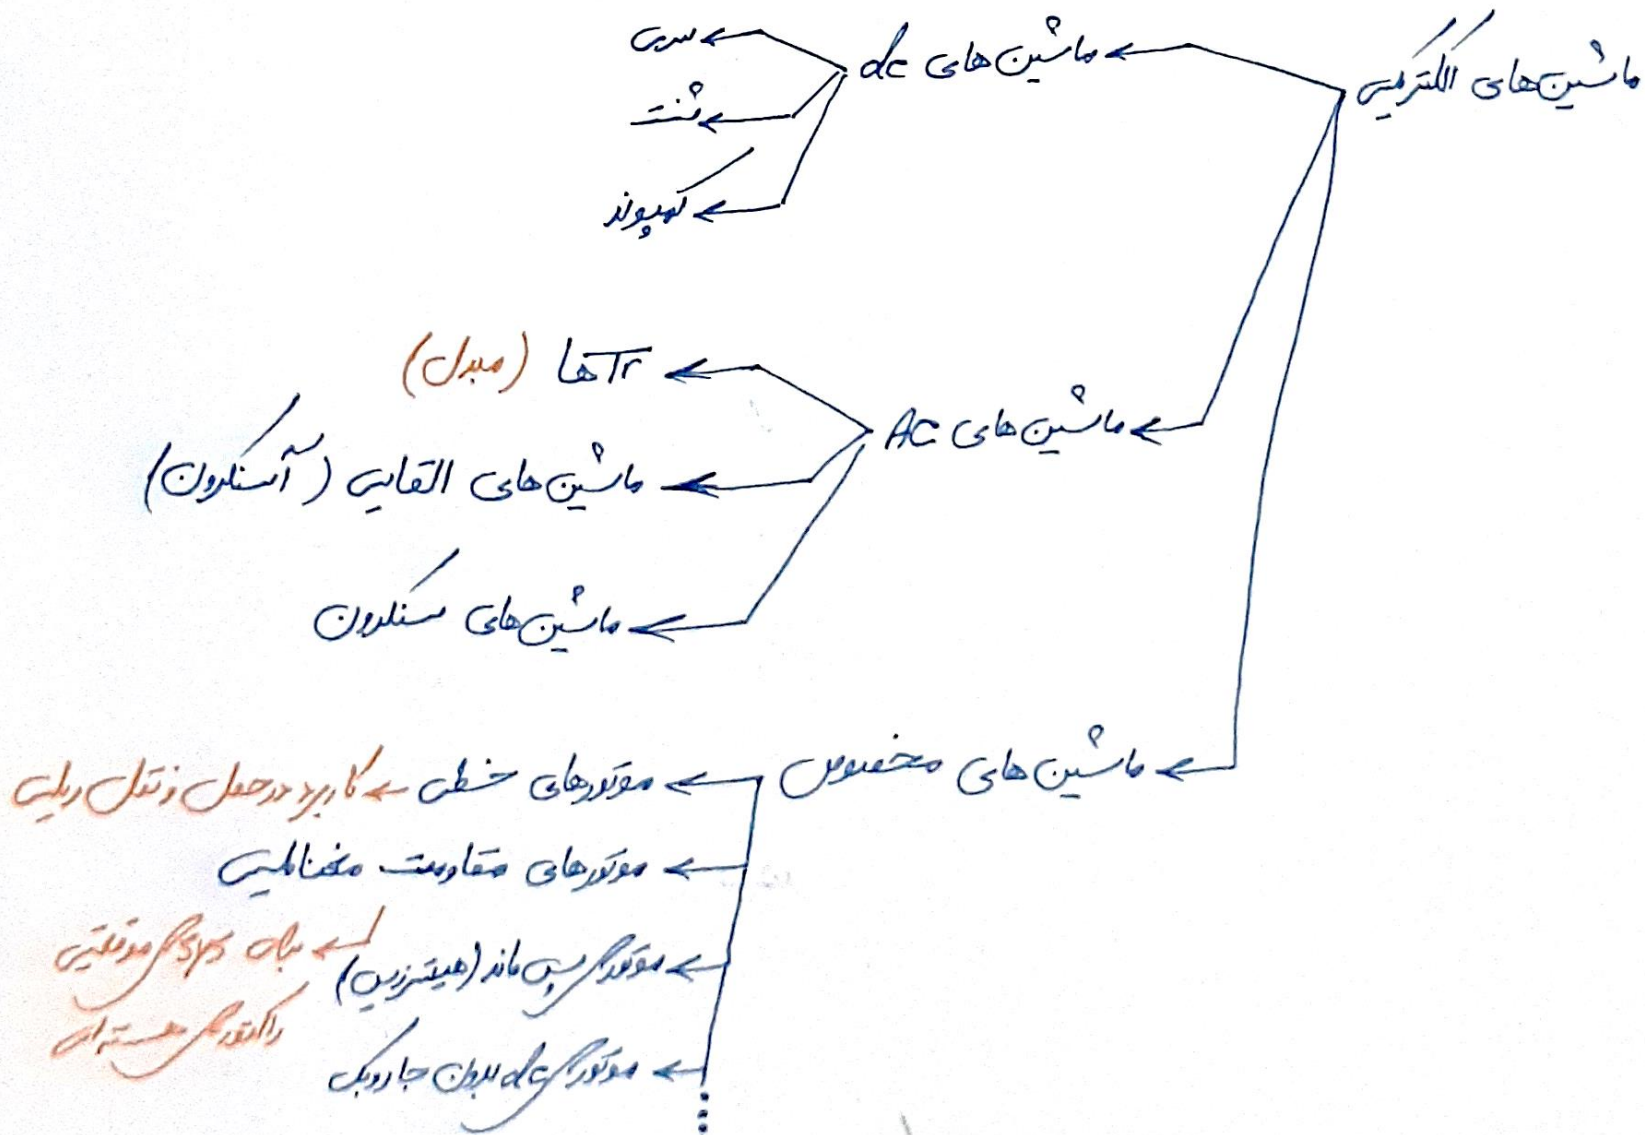 ماشین های الکتریکی
ماشین های dc
سری
شنت
کمپوند
ماشین های AC
Tr ها (مبدل)
ماشین های القایی (آسنکرون)
ماشین های سنکرون
ماشین های مخصوص
موتورهای خطی ← کاربرد در حمل و نقل ریلی
موتورهای مقاومت مغناطیسی
موتورهای پس ماند (هیسترزیس)
راکتورهای هسته ای
موتورهای dc بدون جاروبک